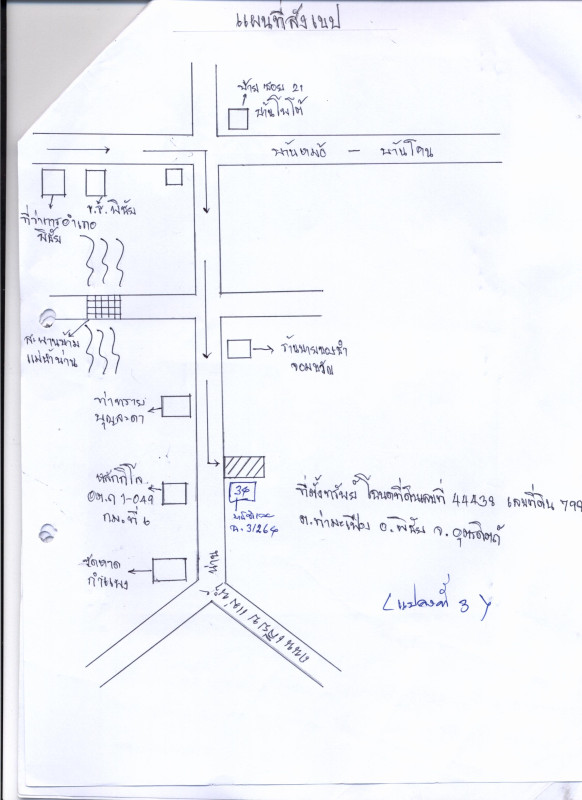 แผนที่สังเขป
ป้าย ซอย 21
บ้านโพโต้
บ้านหมอ — บ้านโคน
ที่ว่าการอำเภอ
พิชัย
พิชัย
สะพานข้าม
แม่น้ำน่าน
ร้านขายของชำ
จอมขวัญ
ท่าทราย
บุญละดา
หลักกิโล
อต.ถ 1-049
กม.ที่ 6
34
น.3/264
ที่ตั้งทรัพย์ โฉนดที่ดินเลขที่ 44438 เลขที่ดิน 799
ต.ท่ามะเฟือง อ.พิชัย จ.อุตรดิตถ์
วัดหาด
กำแพง
(แปลงที่ 3)
น่าน
ถนนเลียบแม่น้ำ